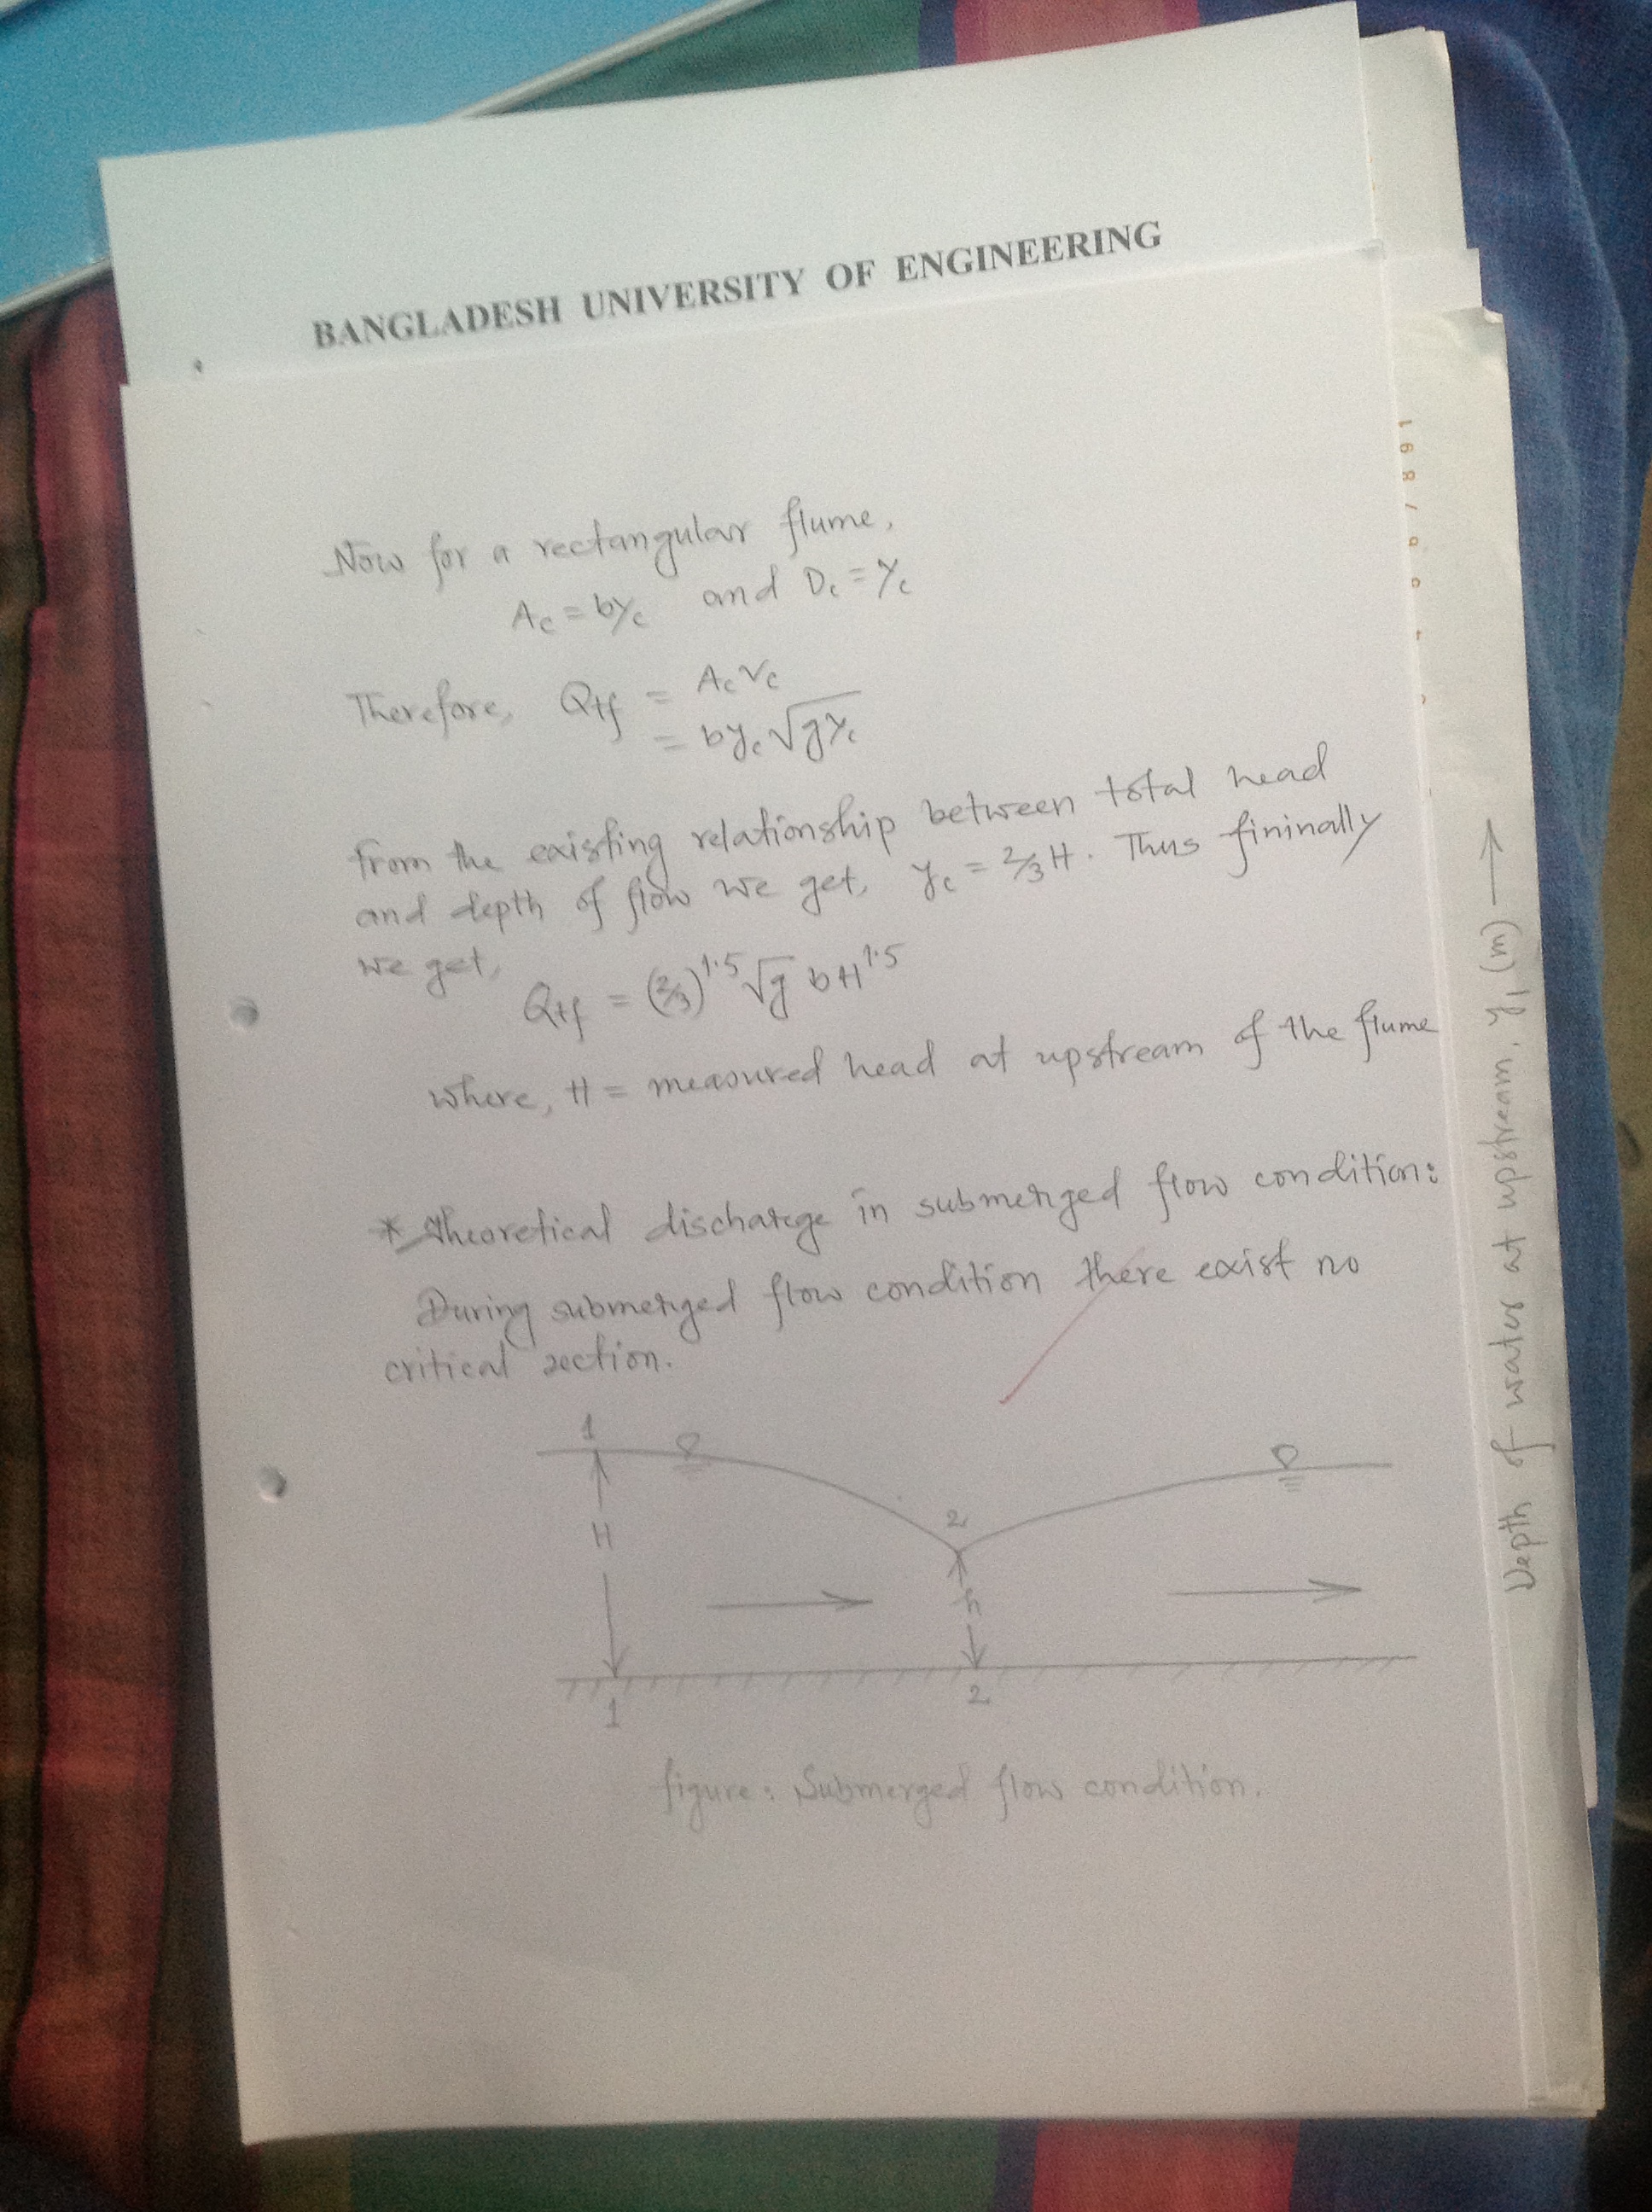 BANGLADESH UNIVERSITY OF ENGINEERING
Now for a rectangular flume,
Ac = byc and Dc = yc
Therefore, Qtf = AcVc
= byc √gyc
From the existing relationship between total head
and depth of flow we get, yc = 2/3 H. Thus fininally
we get,
Qtf = (2/3)^1.5 √g bH^1.5
where, H = measured head at upstream of the flume
* Theoretical discharge in submerged flow condition:
During submerged flow condition there exist no
critical section.
1
2
H
h
1
2
figure: Submerged flow condition.
Depth of water at upstream, y1 (m) →